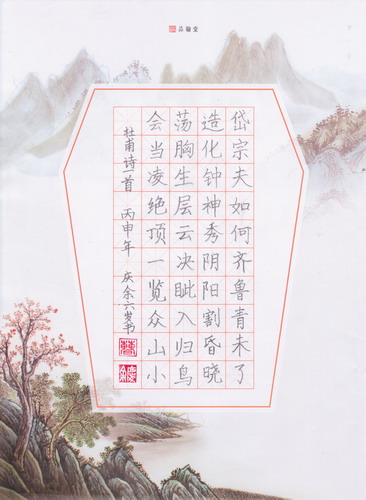 品翰堂
岱宗夫如何齐鲁青未了
造化钟神秀阴阳割昏晓
荡胸生层云决眦入归鸟
会当凌绝顶一览众山小
杜甫诗一首 丙申年 庆余六岁书